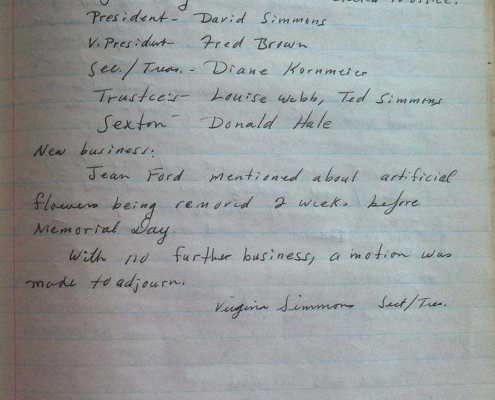 elected to office.
President- David Simmons
V. President- Fred Brown
Sec./Treas.- Diane Kornmeier
Trustees- Louise Webb, Ted Simmons
Sexton- Donald Hale
New business:
Jean Ford mentioned about artificial
flowers being removed 2 weeks before
Memorial Day
With no further business, a motion was
made to adjourn.
Virginia Simmons Sect/Tres.